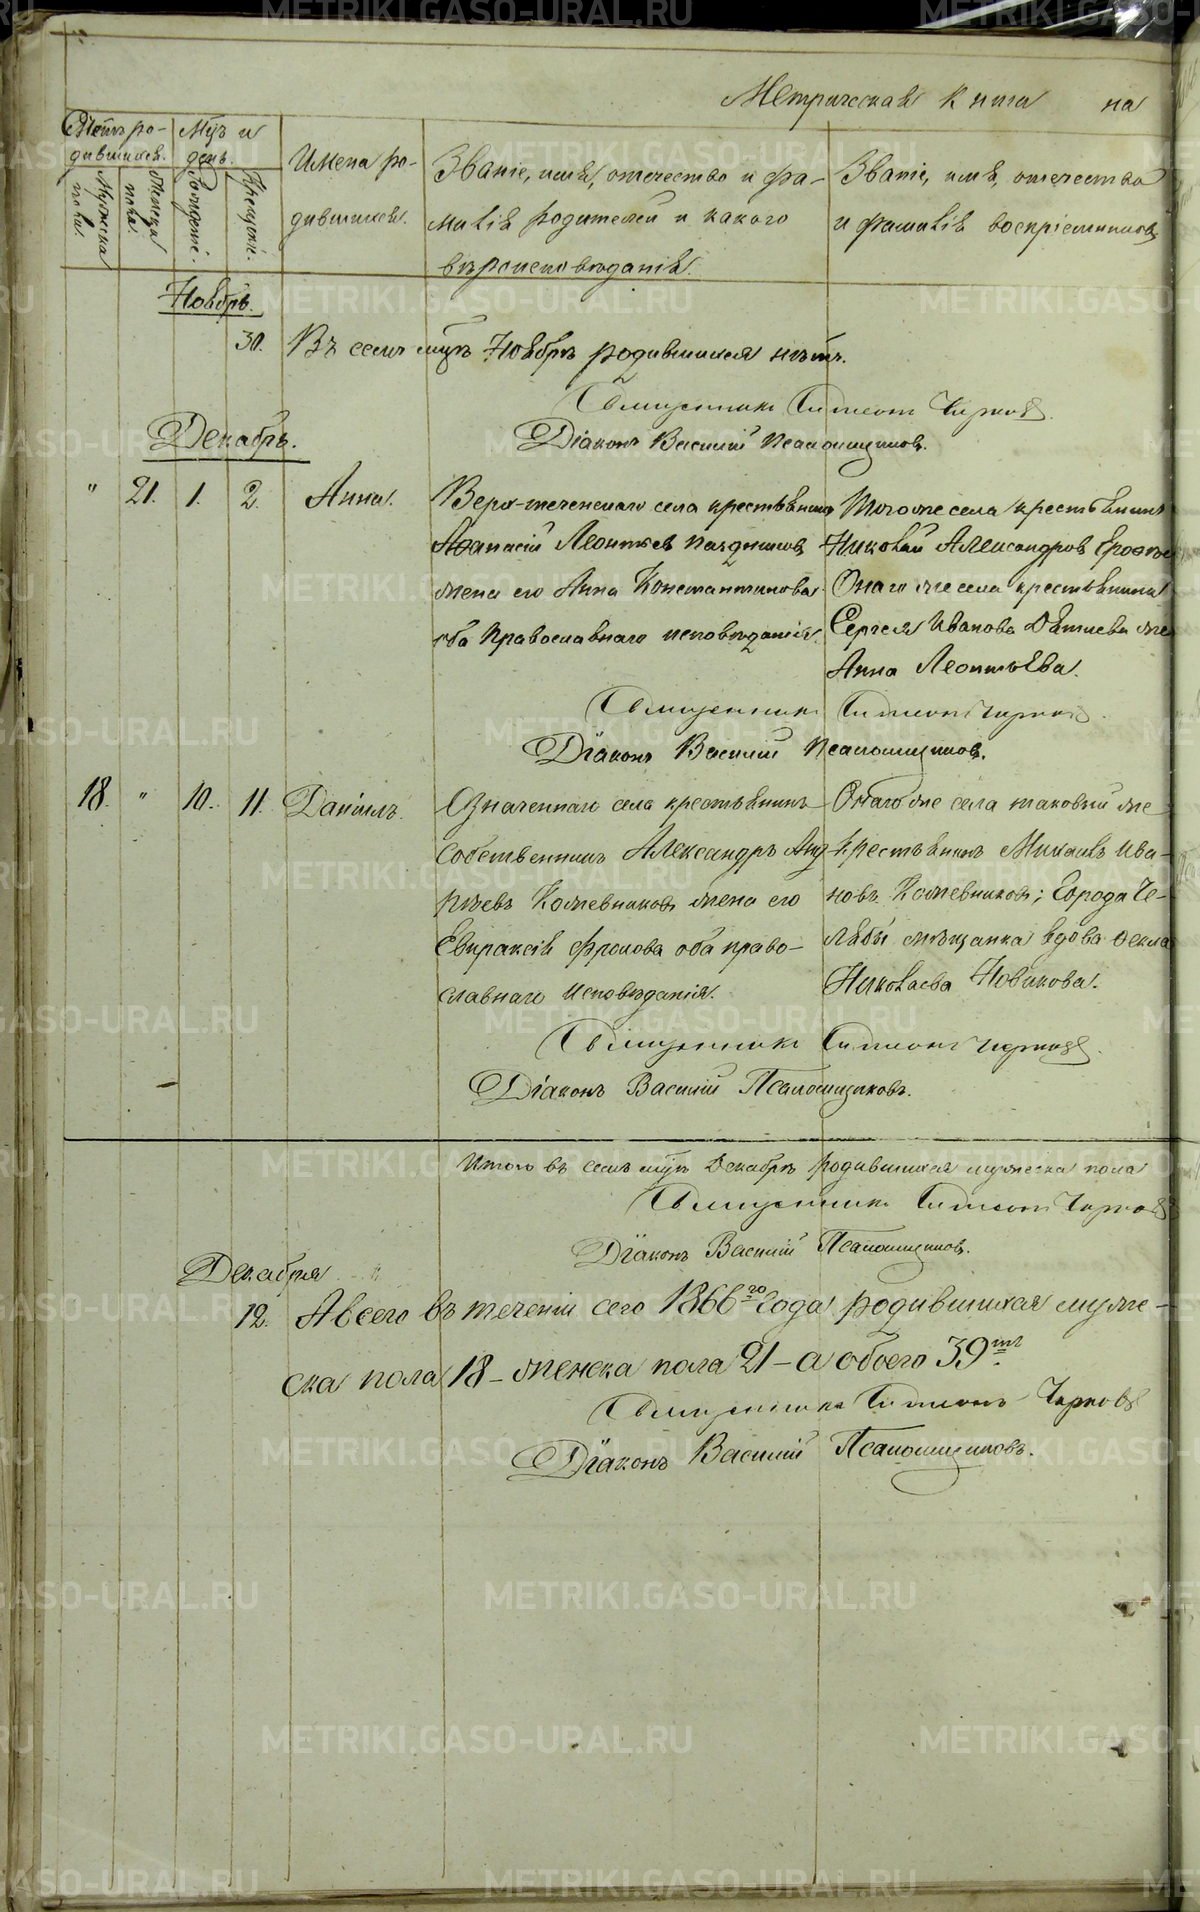 Метрическая книга на
Счетъ ро- Мѣц и
дившихся. день. Имена ро- Званіе, имя, отчество и фа- Званіе, имя, отчество
Мужеска пола. Женска пола. Рожденіе. Крещеніе. дившихся. милія родителей и какого и фамилія воспріемниковъ
вѣроисповѣданія.
Ноябрь.
30. Въ семъ мцѣ Ноябрѣ родившихся нѣтъ.
Священникъ Симеонъ Чирковъ.
Діаконъ Василій Псаломщиковъ.
Декабрь.
" 21. 1. 2. Анна. Верх-теченскаго села крестьянинъ Тогоже села крестьянинъ
Афанасій Леонтьев Николай Александров
жена его Анна Константинова Онаго же села крестьянина
оба Православнаго исповѣданія. Сергея Иванова же
Анна Леонтьева.
Священникъ Симеонъ Чирковъ.
Діаконъ Василій Псаломщиковъ.
18. " 10. 11. Даніилъ. Означеннаго села крестьянинъ Онаго же села таковый же
собственникъ Александръ Анд крестьянинъ Михаилъ Ива-
рѣевъ Кожевниковъ жена его новъ Кожевниковъ; Города Че-
Евпраксія Фролова оба право- лябы мѣщанка вдова Фекла
славнаго исповѣданія. Николаева Новикова.
Священникъ Симеонъ Чирковъ.
Діаконъ Василій Псаломщиковъ.
Итого въ семъ мцѣ Декабрѣ родившихся мужеска пола
Священникъ Симеонъ Чирковъ
Діаконъ Василій Псаломщиковъ.
Декабря
12. А всего въ теченіи сего 1866го Года родившихся муже-
ска пола 18 - женска пола 21 - а обоего 39ть.
Священникъ Симеонъ Чирковъ
Діаконъ Василій Псаломщиковъ.
METRIKI.GASO-URAL.RU